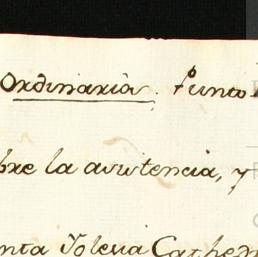 Ordinaria. Punto
bre la asistencia, y
nta Yglesia Cathed